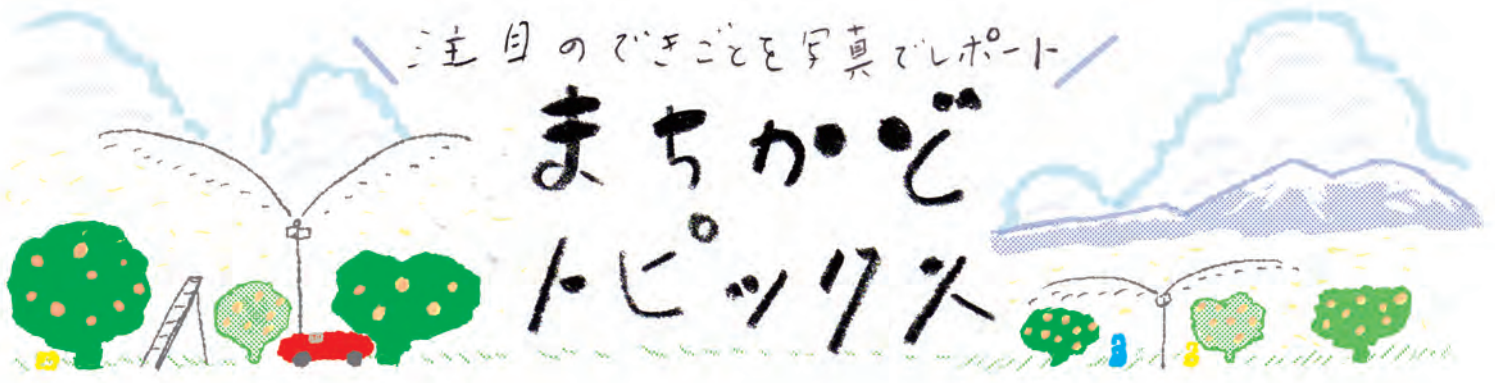 注目のできごとを写真でレポート
まちかど
トピックス